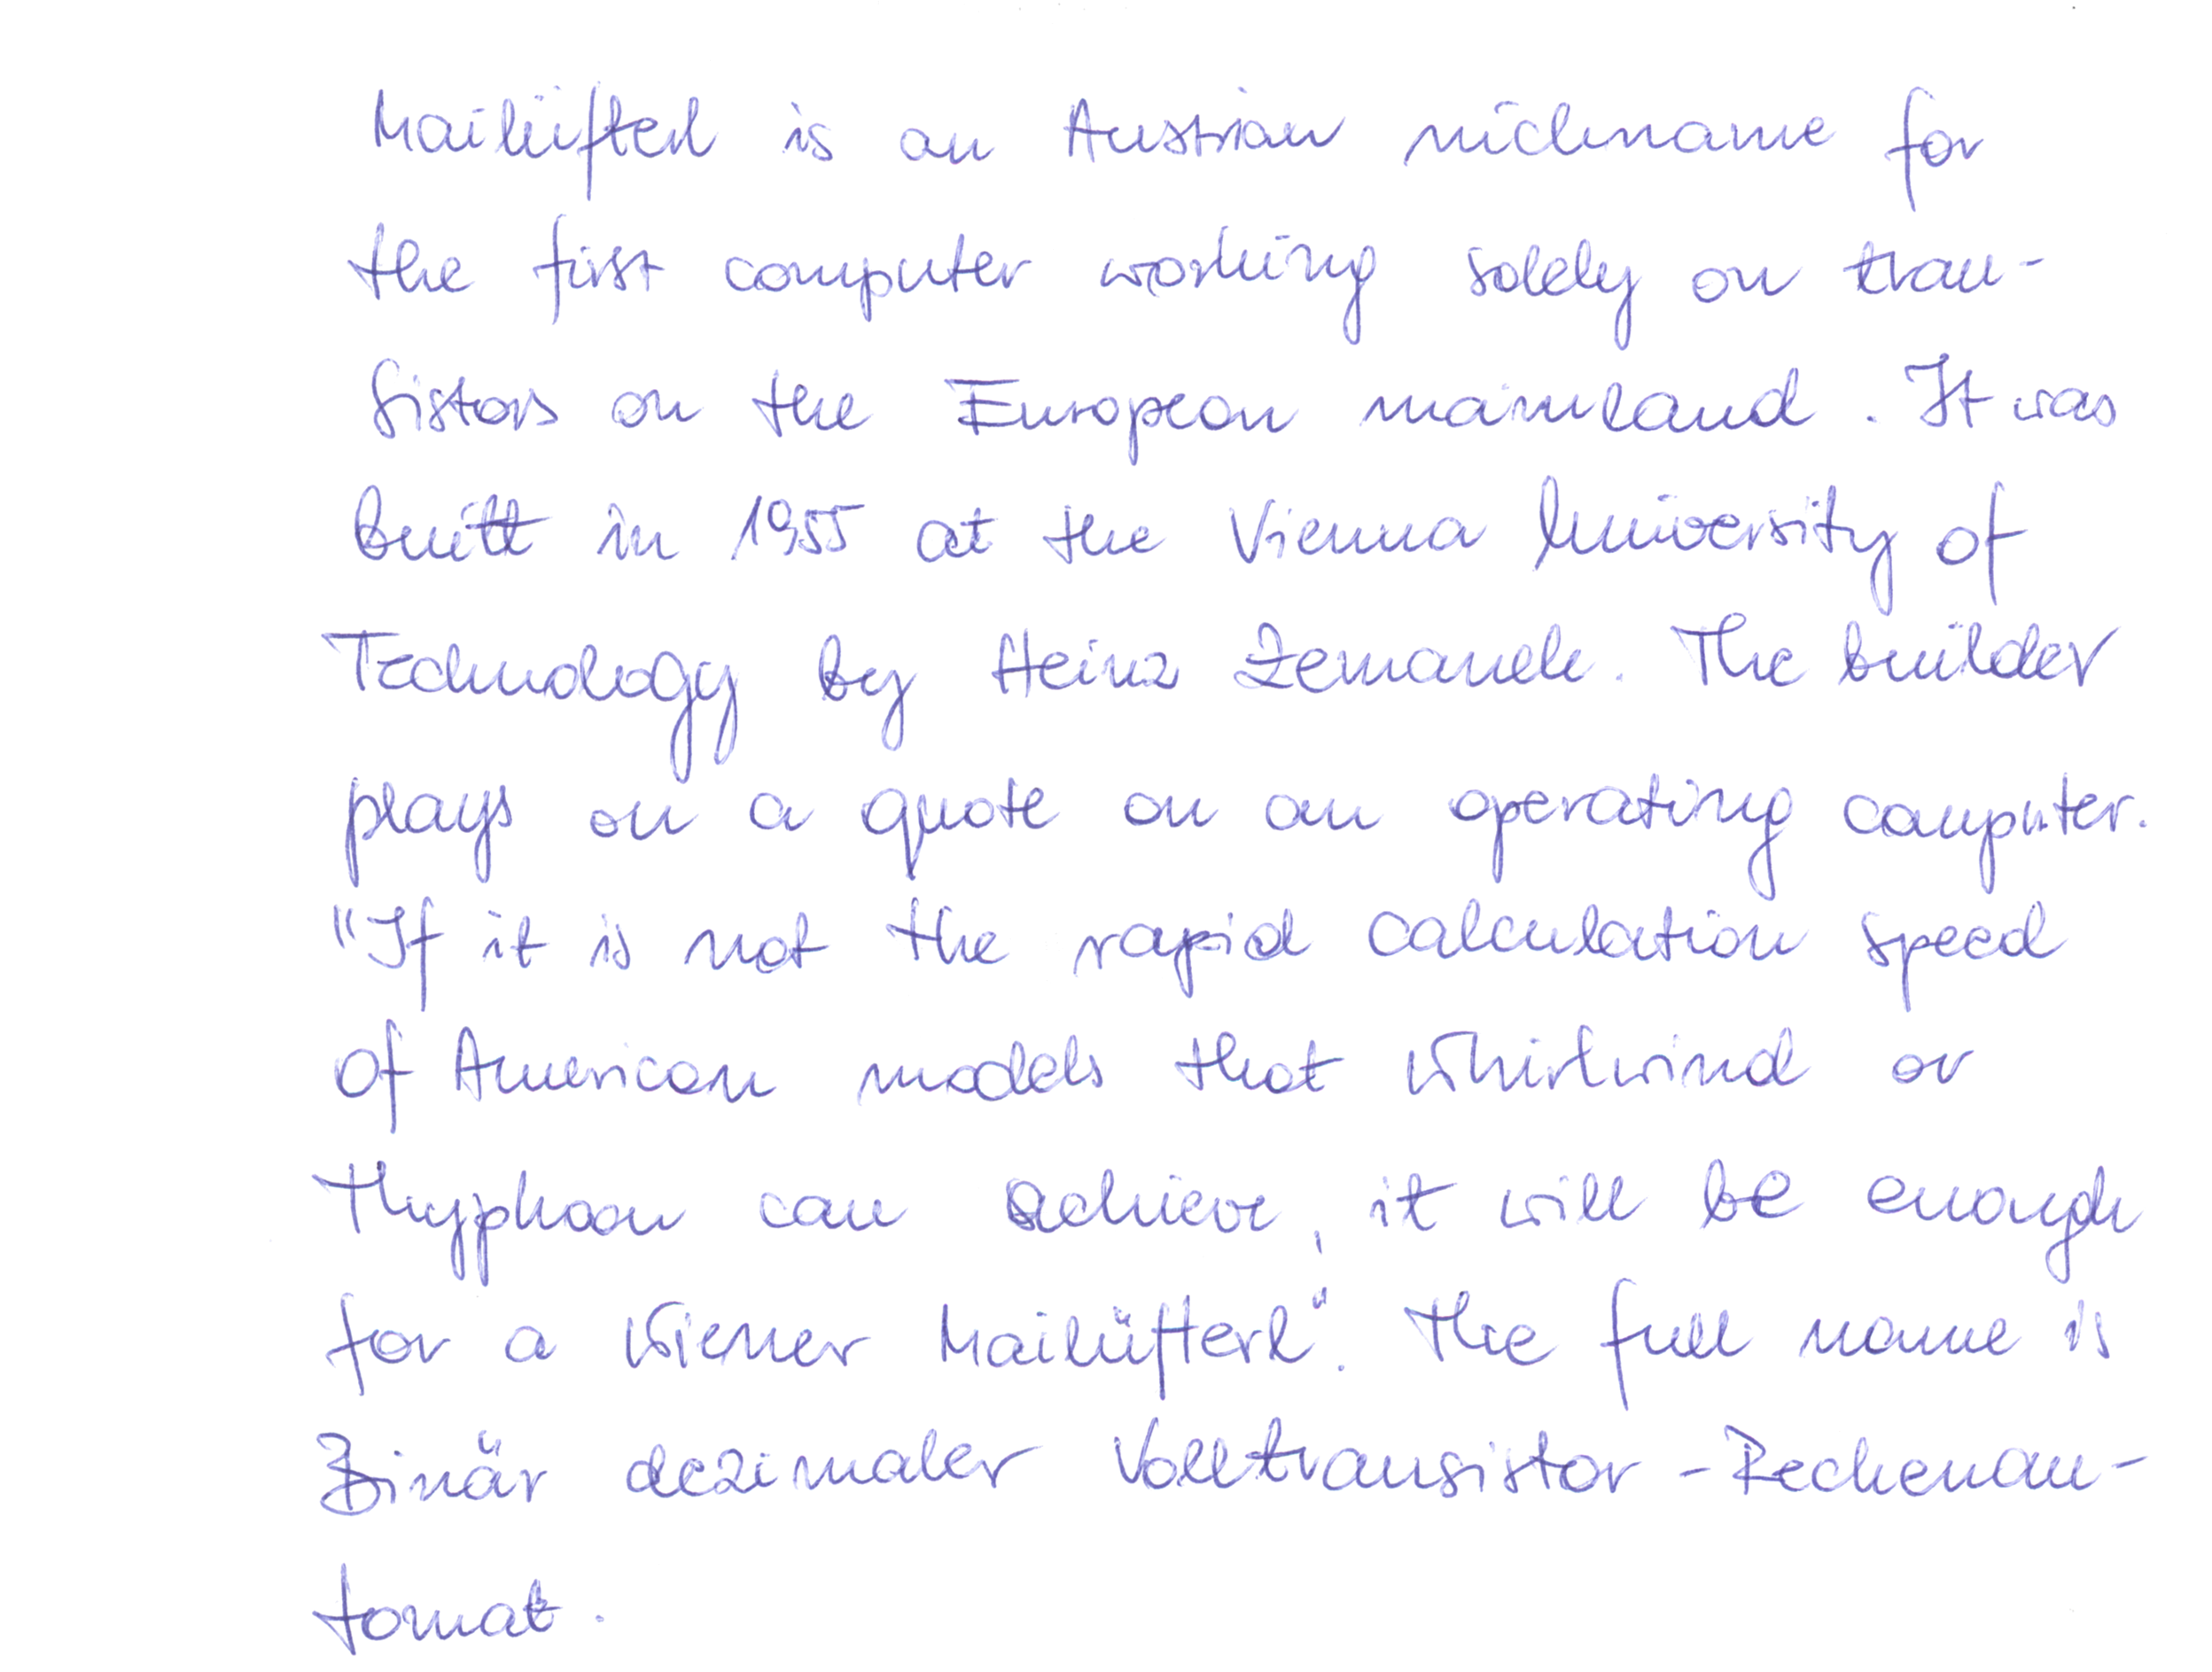 Mailüfterl is an Austrian nickname for
the first computer working solely on tran-
sistors on the European mainland. It was
built in 1955 at the Vienna University of
Technology by Heinz Zemanek. The builder
plays on a quote on an operating computer.
"If it is not the rapid calculation speed
of American models that Whirlwind or
Thyphoon can achieve, it will be enough
for a Wiener Mailüfterl". The full name is
Binär dezimaler Volltransistor-Rechenau-
tomat.